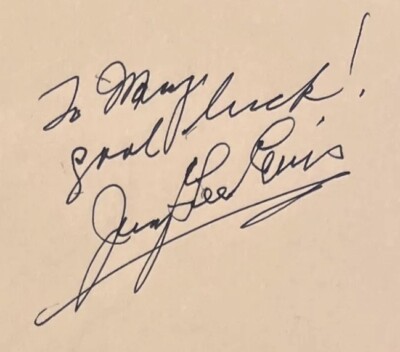 To Mary
good luck!
Jerry Lee Lewis